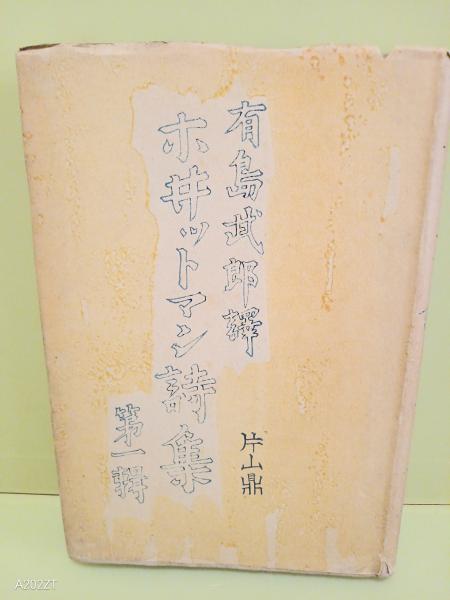 有島武郎譯
ホ井ットマン詩集
第一輯
片山鼎
A202ZT